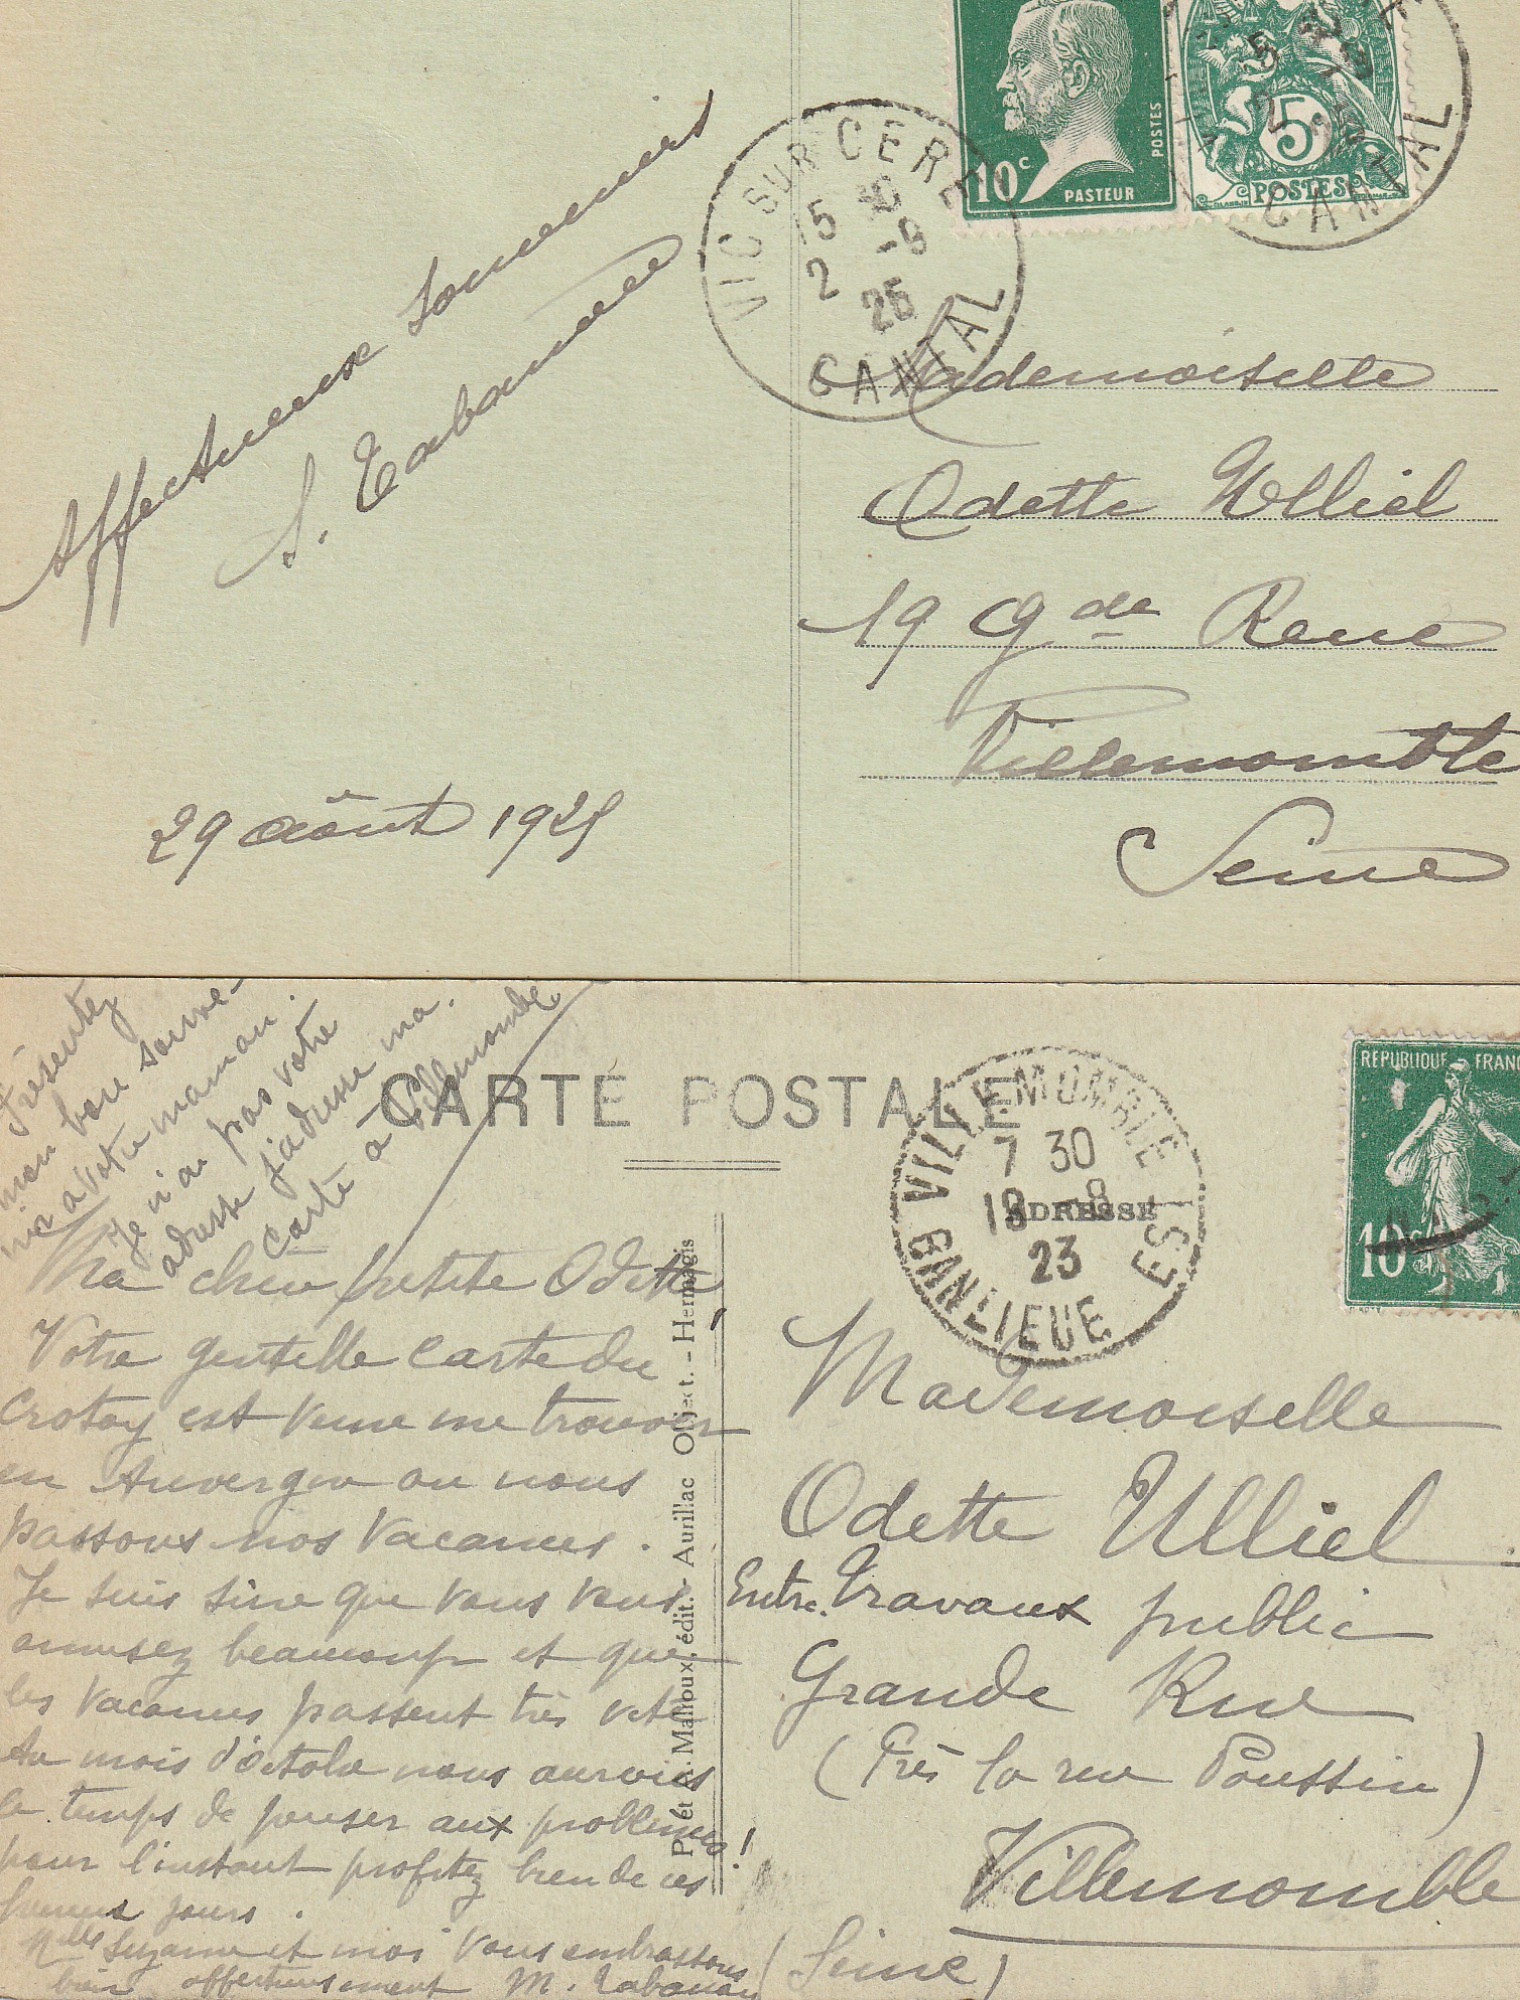 Affectueux souvenirs
S. Tabanou
29 août 1925
VIC SUR CERE
15 30
2 -9
25
CANTAL
10c
PASTEUR
POSTES
5c
POSTES
CANTAL
Mademoiselle
Odette Ulliel
19 Gde Rue
Villemomble
Seine
Présentez
mon bon souve-
nir a votre maman.
Je n'ai pas votre
adresse j'adresse ma
carte à Villemomble
CARTE POSTALE
ADRESSE
VILLEMOMBLE
7 30
19 -8
23
BANLIEUE EST
REPUBLIQUE FRANC
10
Ma chère petite Odette,
Votre gentille carte du
Crotoy est venue me trouver
en Auvergne ou nous
passons nos vacances.
Je suis sûre que vous vous
amusez beaucoup et que
les vacances passent très vite
Au mois d'octobre nous aurons
le temps de penser aux problèmes!
pour l'instant profitez bien de ces
heureux jours.
Melle Suzanne et moi vous embrassons
bien affectueusement M. Tabanou
P. et A. Malroux, édit. - Aurillac Object. - Hermagis
Mademoiselle
Odette Ulliel
Entre. Travaux public
Grande Rue
(Près la rue Poussin)
Villemomble
(Seine)